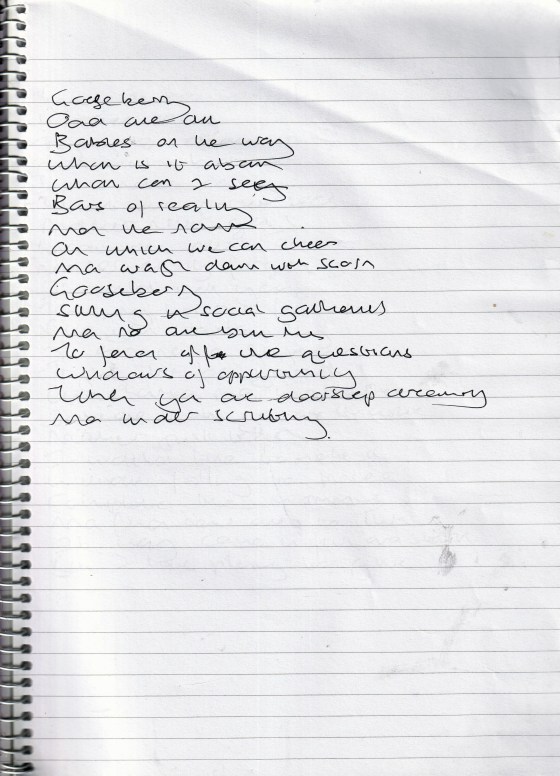 Gooseberry
Odd one out
Babies on the way
What is it about
What can I see
Bars of reality
Not the
On which we can chew
And wash down with scorn
Gooseberry
Sitting in social gatherings
No no one but me
To fend off the questions
Windows of opportunity
When you are doorstep ceremony
Not under scrutiny.